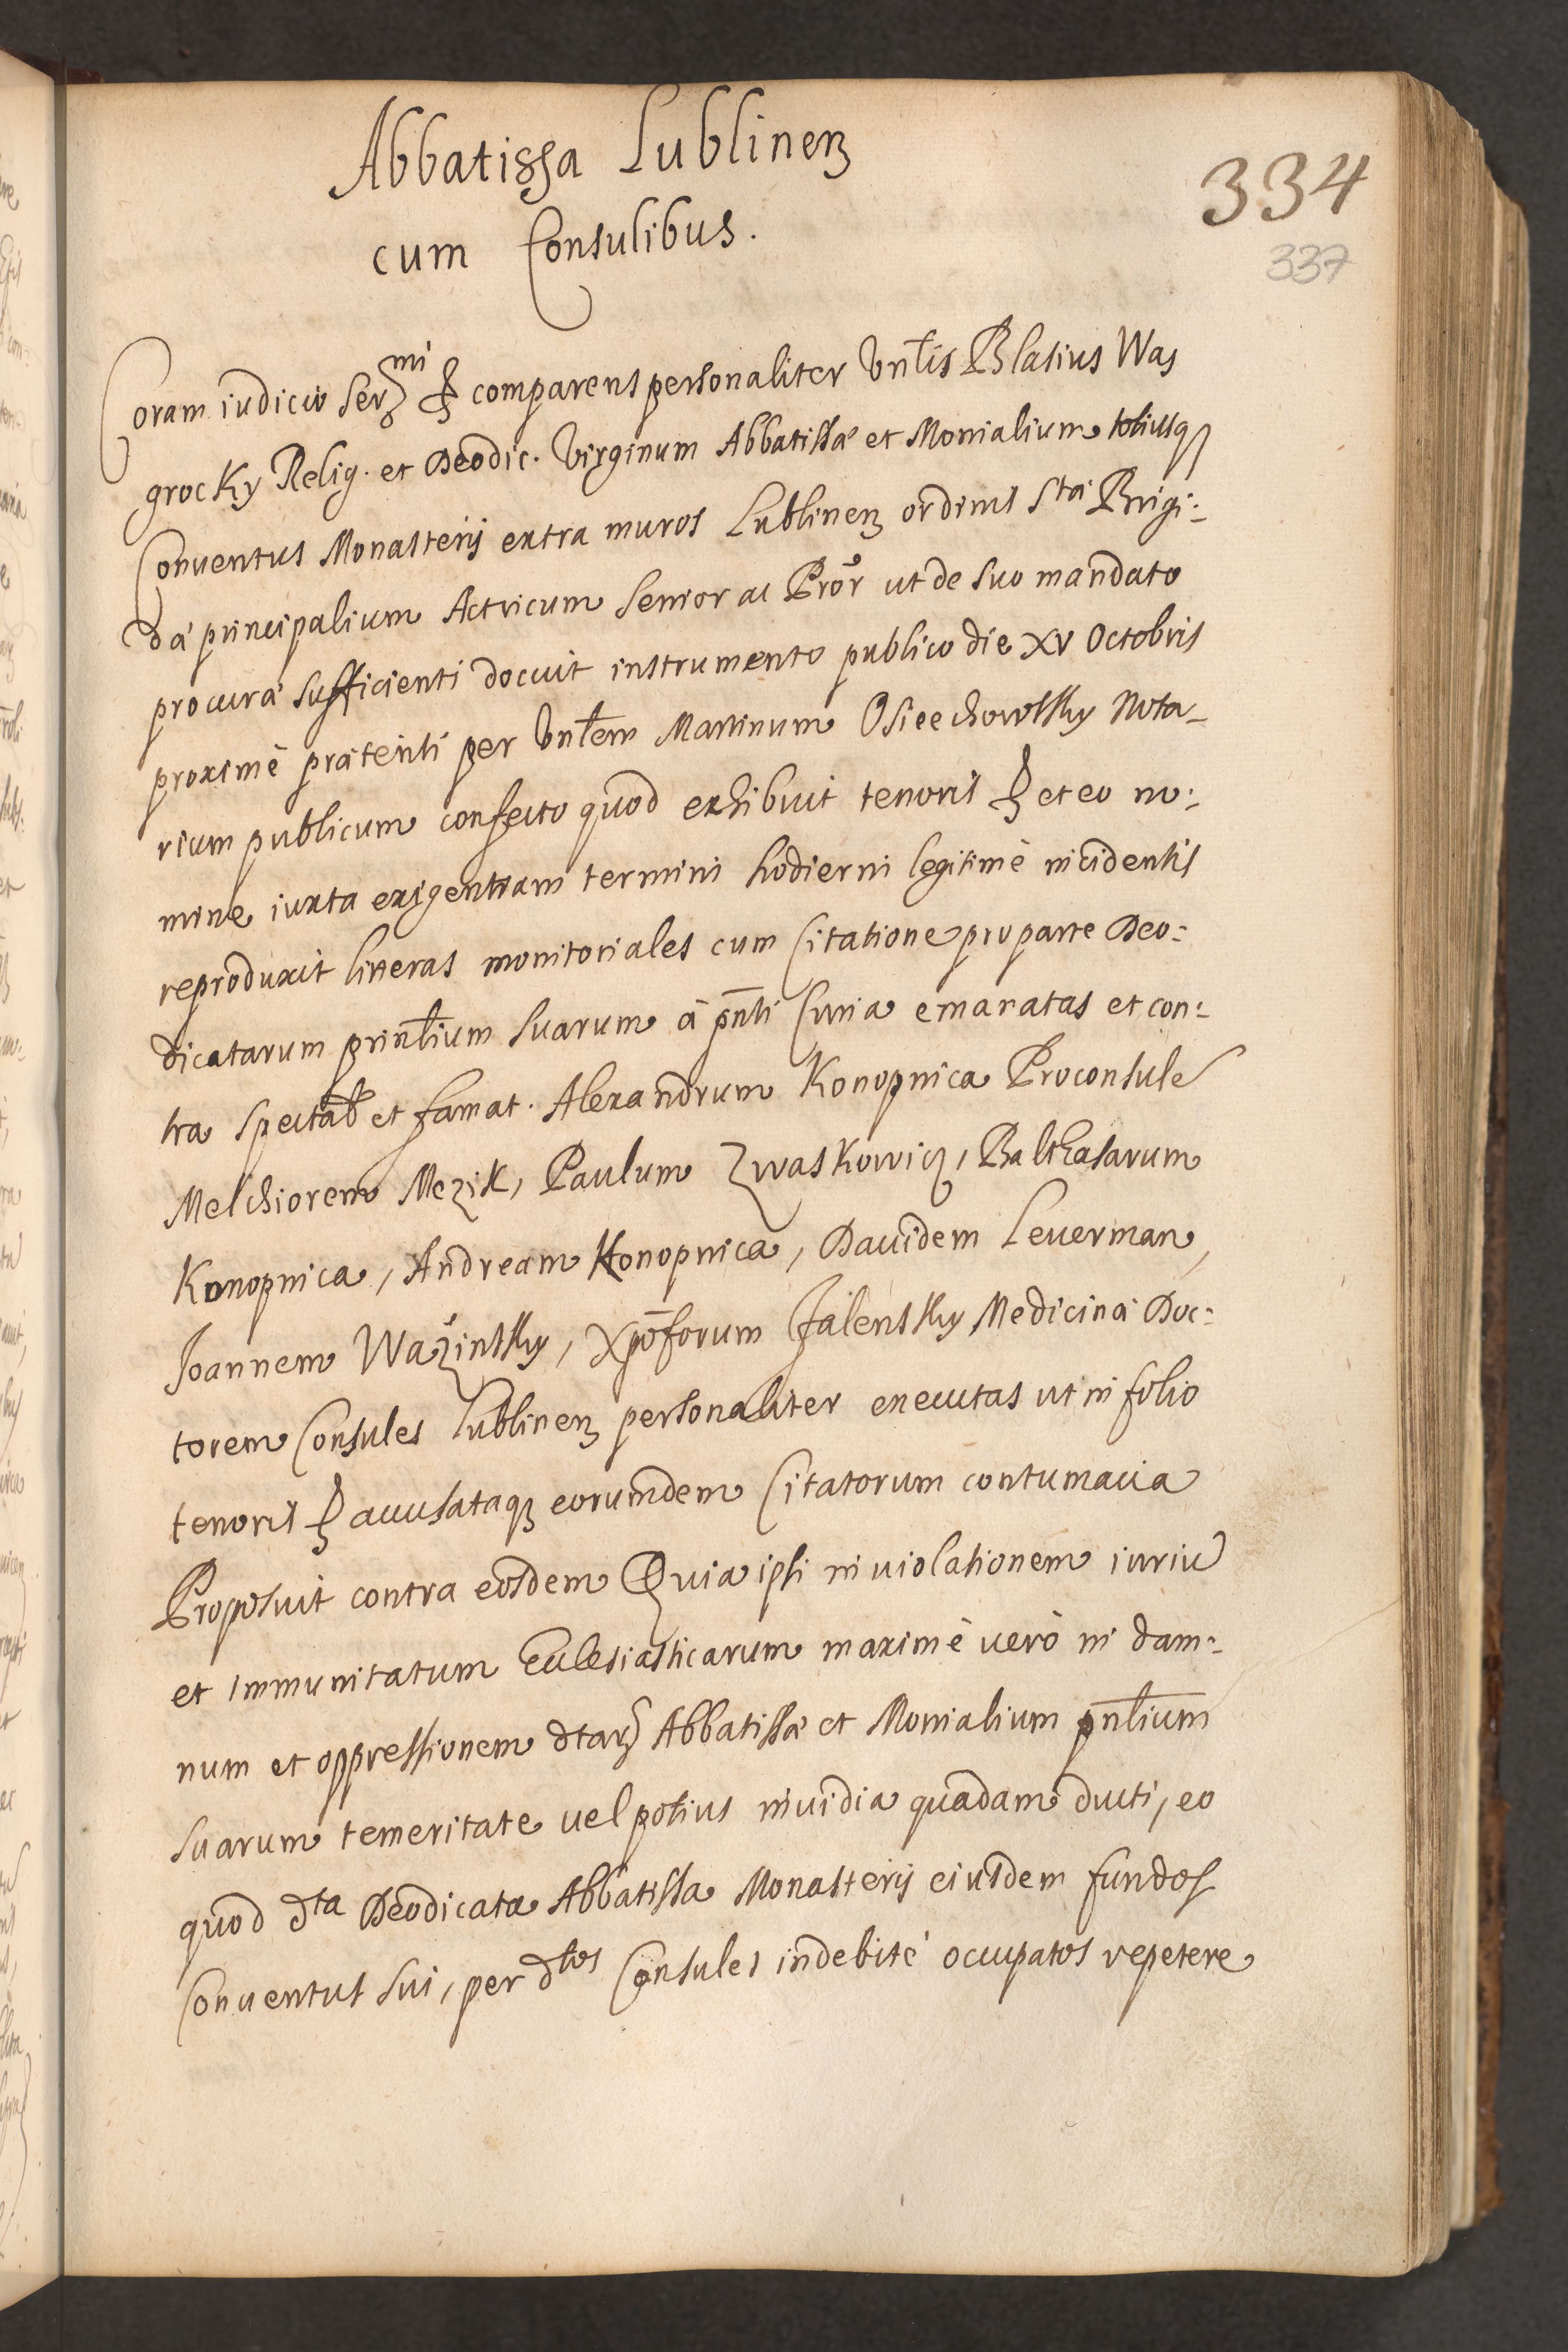 Abbatissa Lublinen
cum Consulibus.
334
337
Coram iudicio Sermi etc comparens personaliter Vnlis Blasius Was
grocky Relig. et Deodic. Virginum Abbatissæ et Monialium totiusq
Conuentus Monasterij extra muros Lublinen ordinis Stæ Brigi:
dæ principalium Actricum Senior ac Pror ut de suo mandato
procuræ sufficienti docuit instrumento publico die XV Octobris
proximè præteriti per Vnlem Martinum Osieechowsky Nota-
rium publicum confecto quod exhibuit tenoris etc et eo no:
mine iuxta exigentiam termini hodierni legitimè incidentis
reproduxit litteras monitoriales cum Citatione pro parte Deo:
dicatarum prinlium suarum à pnti Curia emanatas et con:
tra spectab et famat. Alexandrum Konopnica Proconsule
Melchiorem Mezik, Paulum Zwaskowicz, Balthasarum
Konopnica, Andream Konopnica, Dauidem Leuerman,
Joannem Ważinsky, Xpoforum Jalensky Medicinæ Doc:
torem Consules Lublinen personaliter executas ut in folio
tenoris etc accusataq eorumdem Citatorum contumacia
Proposuit contra eosdem Quia ipsi in uiolationem iuriu
et immunitatum Ecclesiasticarum maximè verò in dam:
num et oppressionem dtar Abbatissæ et Monialium pnlium
suarum temeritate uel potius inuidia quadam ducti, eo
quod dta Deodicata Abbatissa Monasterij eiusdem fundos
Conuentus sui, per dtos Consules indebitè occupatos repetere